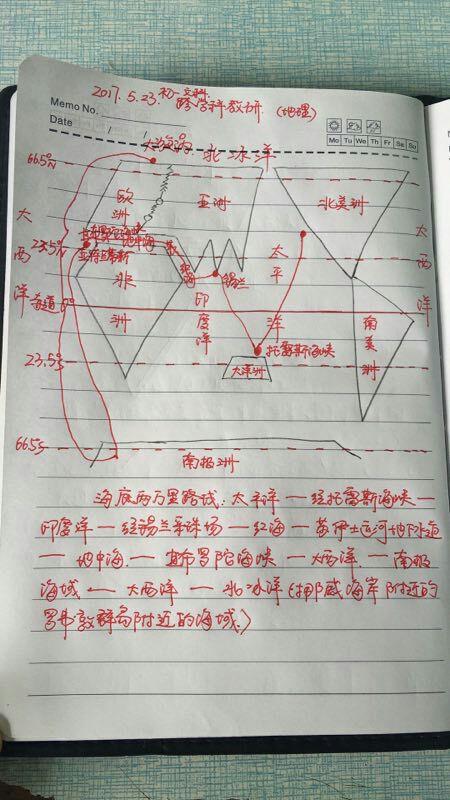 2017.5.23.初一文科
跨学科教研.(地理)
Memo No.
Date / /
Mo Tu We Th Fr Sa Su
大漩涡 北冰洋
66.5°N
欧洲
亚洲
北美洲
大西洋
大西洋
直布罗陀海峡
地中海
23.5°N
红海
锡兰
太平洋
非洲
印度洋
赤道 0°
南美洲
托雷斯海峡
23.5°S
大洋洲
66.5°S
南极洲
海底两万里路线:太平洋—经托雷斯海峡—
印度洋—经锡兰采珠场—红海—苏伊士运河地下通道
—地中海.—直布罗陀海峡—大西洋.—南极
海域—大西洋—北冰洋(挪威海岸附近的
罗弗敦群岛附近的海域.)